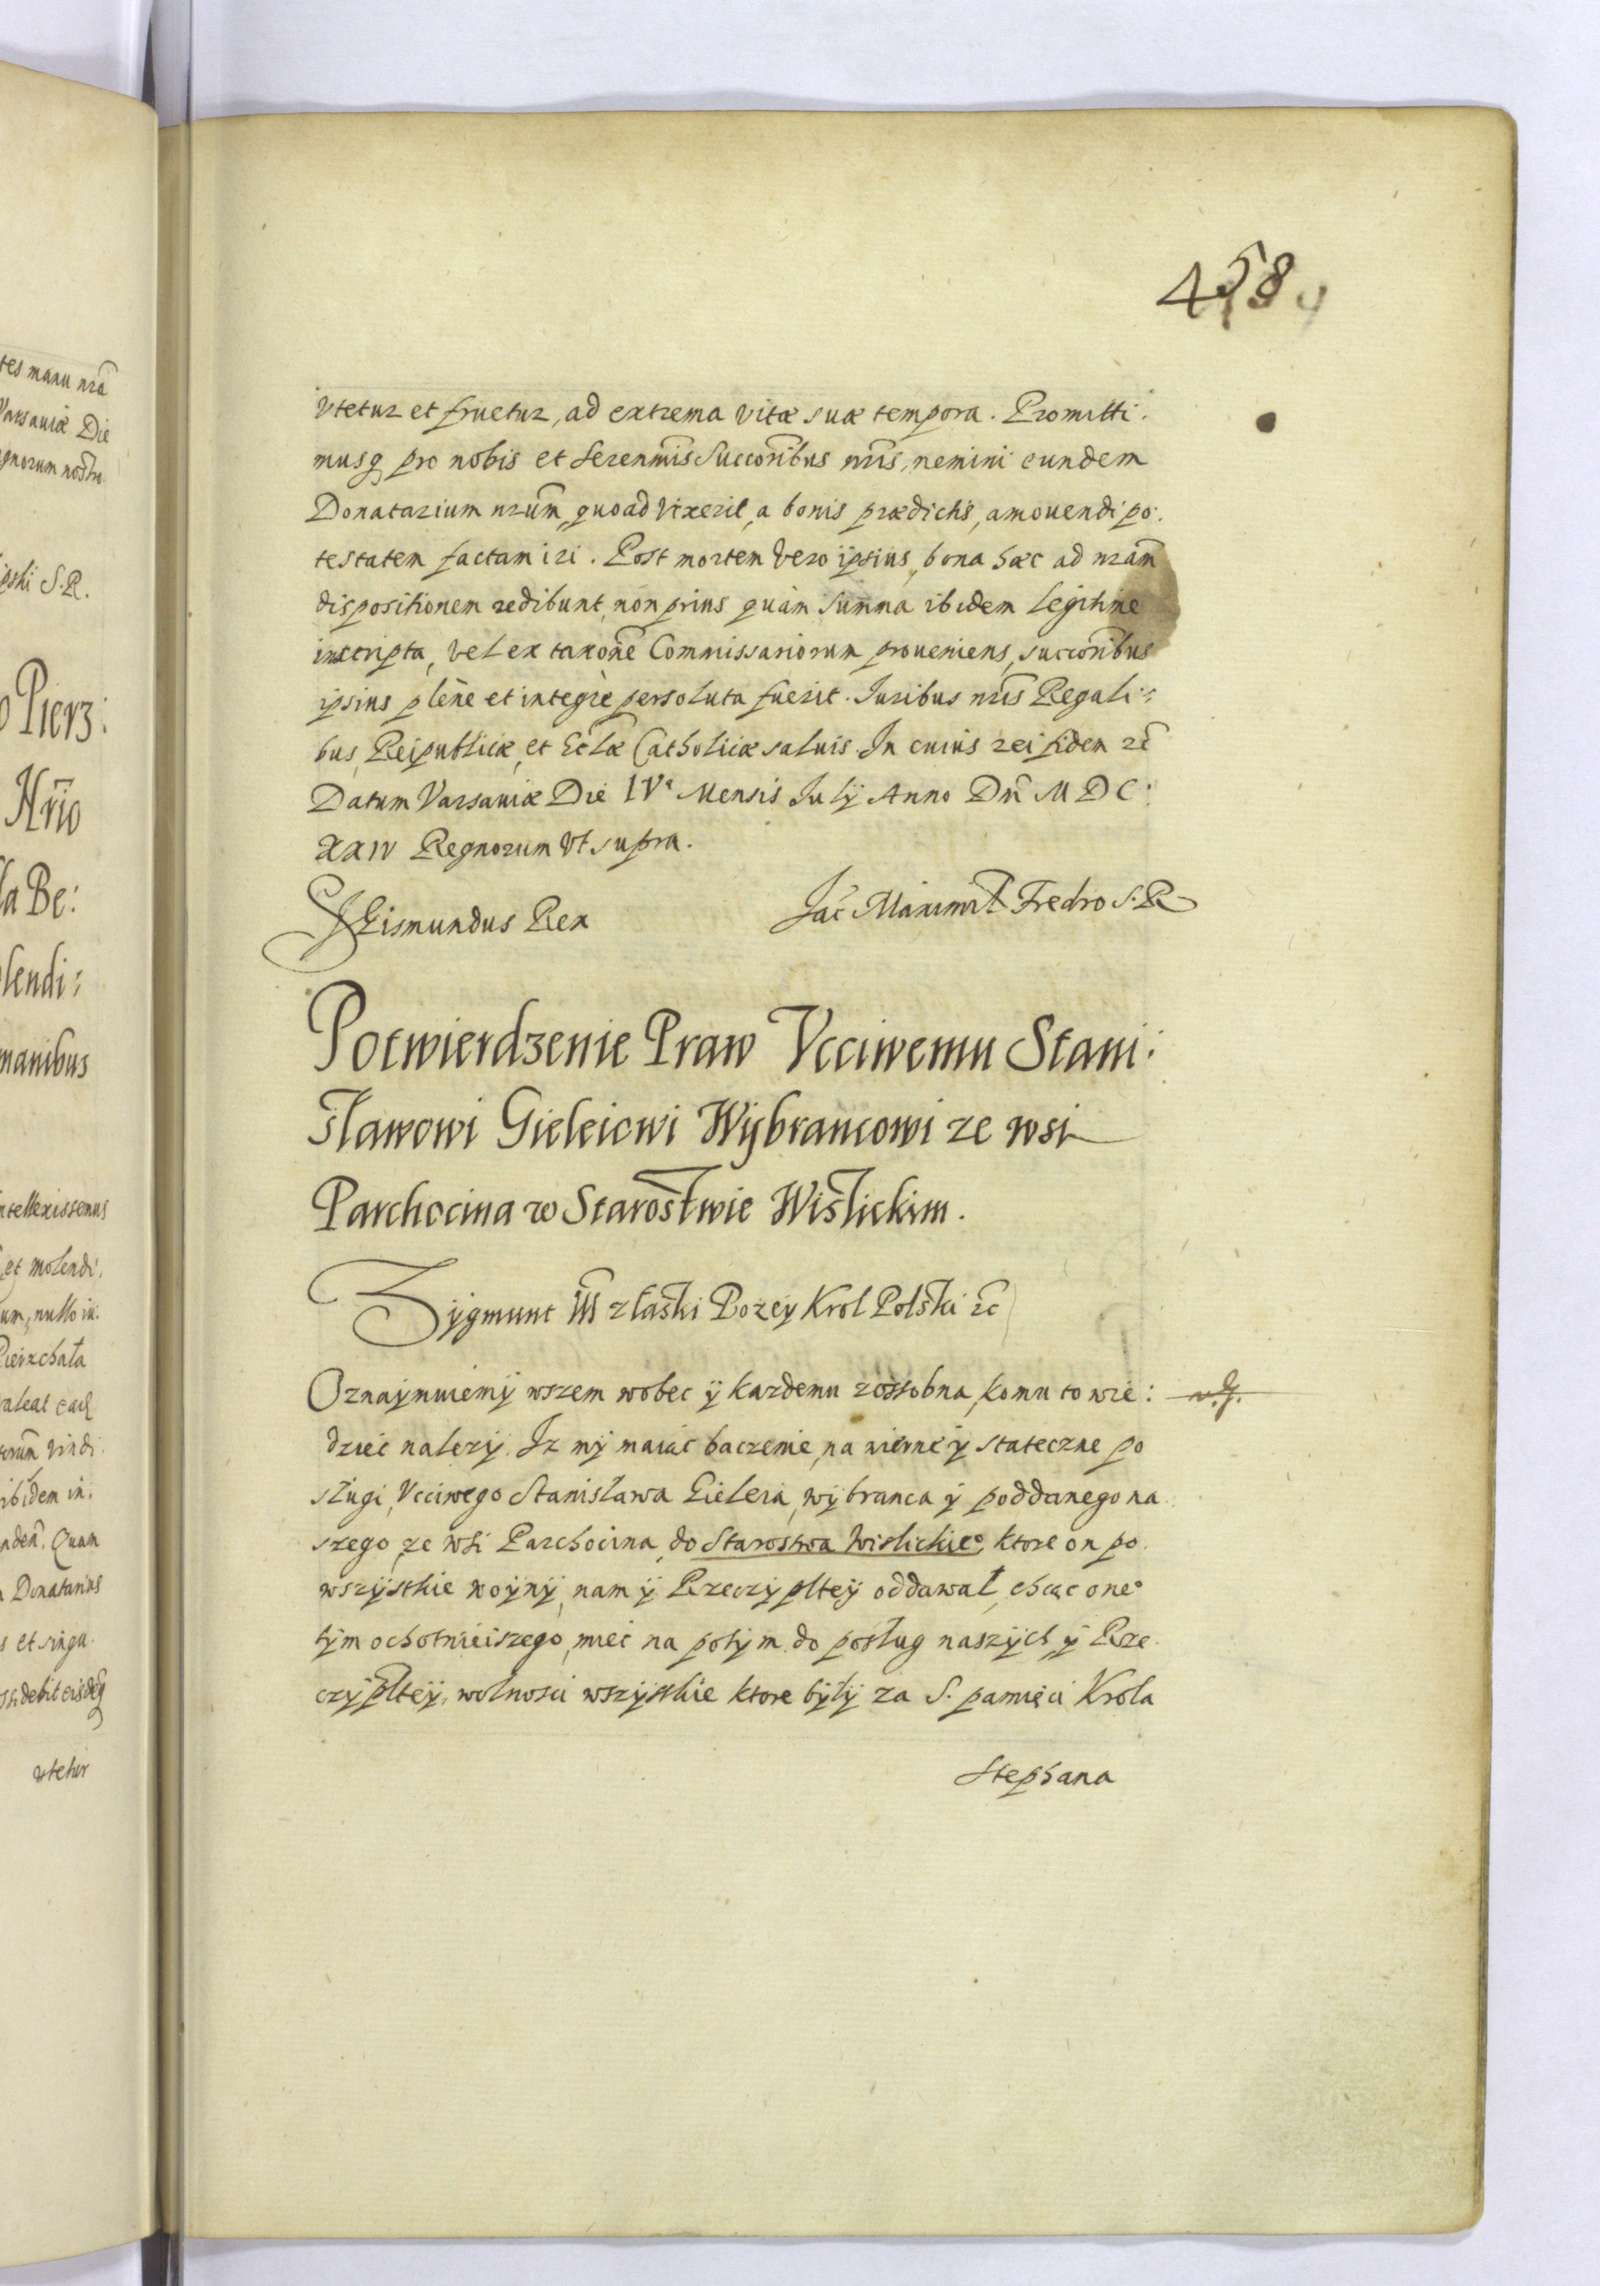 tes manu nrã
Varsauiæ Die
gnorum nostro
pski S.R.
o Pierz:
Hrio
la Be:
lendi:
manibus
ntellexissemus
et molendi,
um, nullo in:
Pierzchała
ibidem in:
Quam
Donatarius
s et singu.
utetur
458
vtetur et fruetur, ad extrema vitæ suæ tempora. Promitti:
musq pro nobis et Serenmis Succoribus nris, nemini eundem
Donatarium nrum, quoad vixerit, a bonis prædictis, amouendi po:
testatem factam iri. Post mortem vero ipsius, bona hæc ad nram
dispositionem redibunt, non prius quàm summa ibidem legitime
inscripta, vel ex taxone Commissariorum proueniens, succoribus
ipsius plene et integrè persoluta fuerit. Iuribus nris Regali:
bus, Reipublicæ, et Eclæ Catholicæ saluis. In cuius rei fidem rc
Datum Varsauiæ Die IVa Mensis July Anno Dni M D C:
XXIV Regnorum vt supra.
Sigismundus Rex
Jac Maximil Fredro S.R
Potwierdzenie Praw Vcciwemu Stani:
sławowi Gieleiowi Wybrancowi ze wsi
Parchocina w Starostwie Wislickim.
Zygmunt III z łaski Bozey Krol Polski rc
Oznaymuiemy wszem wobec y kazdemu zossobna, komu to wie:
dziec nalezy. Iz my maiąc baczenie, na wierne y stateczne po
sługi, Vcciwego Stanisława Gieleia, wybranca y poddanego na
szego ze wsi Parchocina, do Starostwa Wislickieo, ktore on po
wszystkie woyny, nam y Rzeczypltey oddawał, chcąc oneo
tym ochotnieiszego, miec na potym do posług naszych y Rze
czypltey, wolnosci wszystkie ktore były za S. pamięci Krola
Stephana